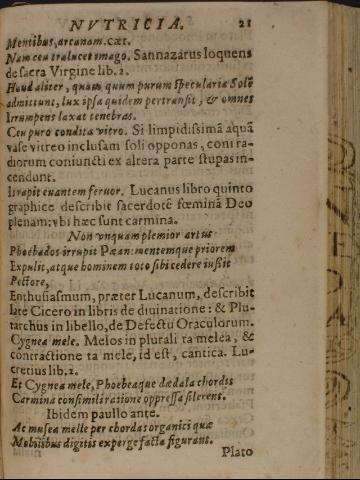 NVTRICIA. 21
Mentibus, arcanam. cæt.
Nam ceu tralucet imago. Sannazarus loquens
de sacra Virgine lib. 2.
Haud aliter, quam quum purum specularia Solē
admittunt, lux ipsa quidem pertransit, & omnes
Irrumpens laxat tenebras.
Ceu puro condita vitro. Si limpidissimā aquā
vase vitreo inclusam soli opponas, coni ra-
diorum coniuncti ex altera parte stupas in-
cendunt.
Irrapit cuantem feruor. Lucanus libro quinto
graphice describit sacerdotē fœminā Deo
plenam: vbi hæc sunt carmina.
Non vnquam plenior artus
Phoebados irrupit Pæan: mentemque priorem
Expulit, atque hominem toto sibi cedere iußit
Pectore,
Enthusiasmum, præter Lucanum, describit
late Cicero in libris de diuinatione: & Plu-
tarchus in libello, de Defectu Oraculorum.
Cygnea mele. Melos in plurali ta melea, &
contractione ta mele, id est, cantica. Lu-
cretius lib. 2.
Et Cygnea mele, Phoebeaque dædala chordis
Carmina consimili ratione oppressa silerent.
Ibidem paullo ante.
Ac musea melle per chordas organici quæ
Mobilibus digitis expergefacta figurant.
Plato